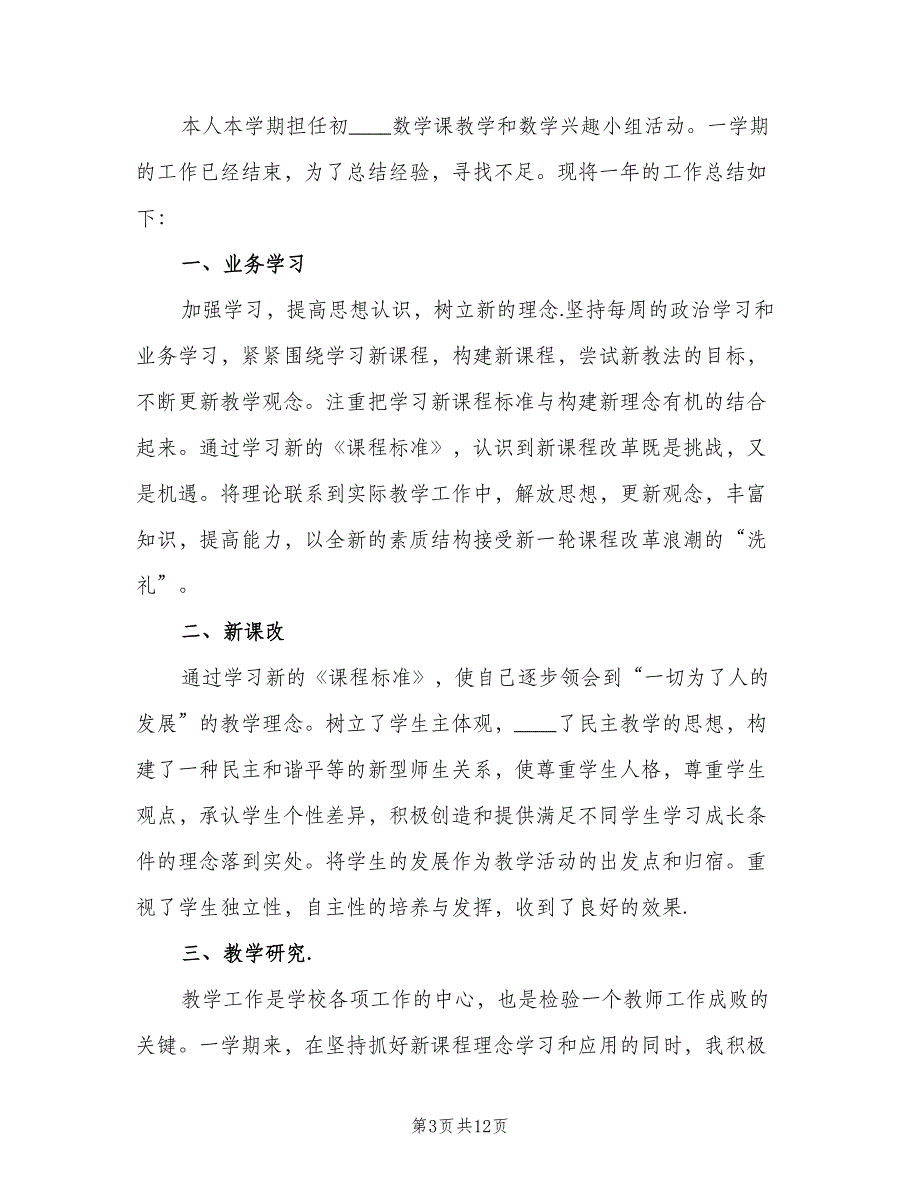 本人本学期担任初____数学课教学和数学兴趣小组活动。一学期
的工作已经结束，为了总结经验，寻找不足。现将一年的工作总结如
下：
一、业务学习
加强学习，提高思想认识，树立新的理念.坚持每周的政治学习和
业务学习，紧紧围绕学习新课程，构建新课程，尝试新教法的目标，
不断更新教学观念。注重把学习新课程标准与构建新理念有机的结合
起来。通过学习新的《课程标准》，认识到新课程改革既是挑战，又
是机遇。将理论联系到实际教学工作中，解放思想，更新观念，丰富
知识，提高能力，以全新的素质结构接受新一轮课程改革浪潮的“洗
礼”。
二、新课改
通过学习新的《课程标准》，使自己逐步领会到“一切为了人的
发展”的教学理念。树立了学生主体观，____了民主教学的思想，构
建了一种民主和谐平等的新型师生关系，使尊重学生人格，尊重学生
观点，承认学生个性差异，积极创造和提供满足不同学生学习成长条
件的理念落到实处。将学生的发展作为教学活动的出发点和归宿。重
视了学生独立性，自主性的培养与发挥，收到了良好的效果.
三、教学研究.
教学工作是学校各项工作的中心，也是检验一个教师工作成败的
关键。一学期来，在坚持抓好新课程理念学习和应用的同时，我积极
第3页共12页